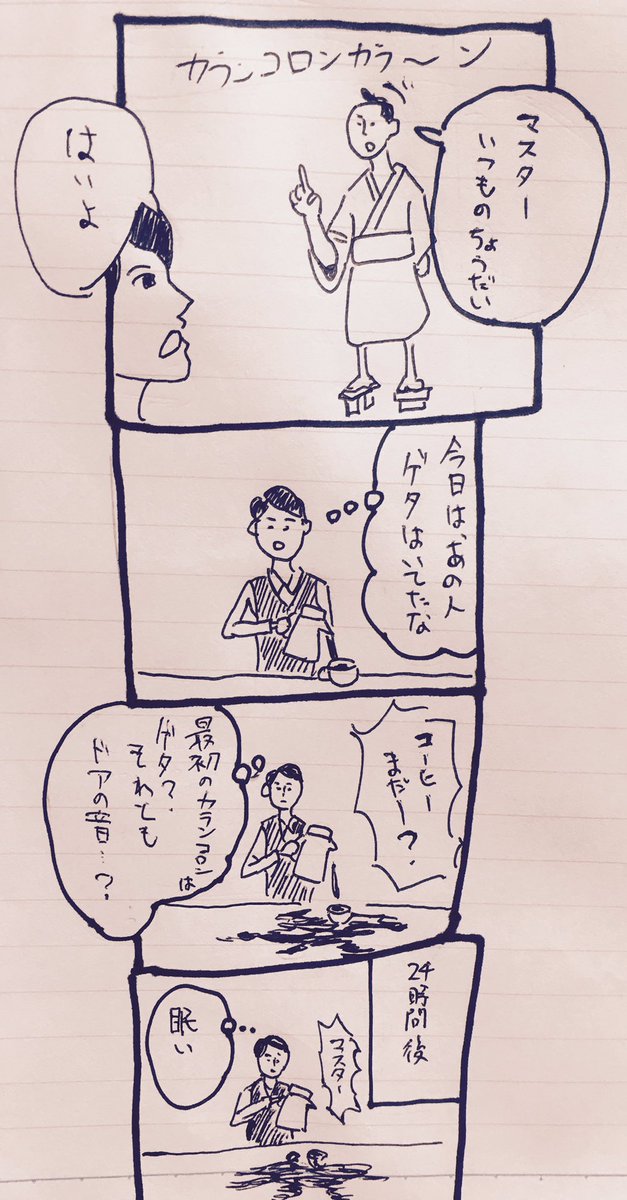 カランコロンカラ〜ン
マスター
いつものちょうだい
はいよ
今日は、あの人
ゲタはいてたな
コーヒー
まだー?
最初のカランコロンは
ゲタ?
それとも
ドアの音…?
24時間後
マスター
眠い